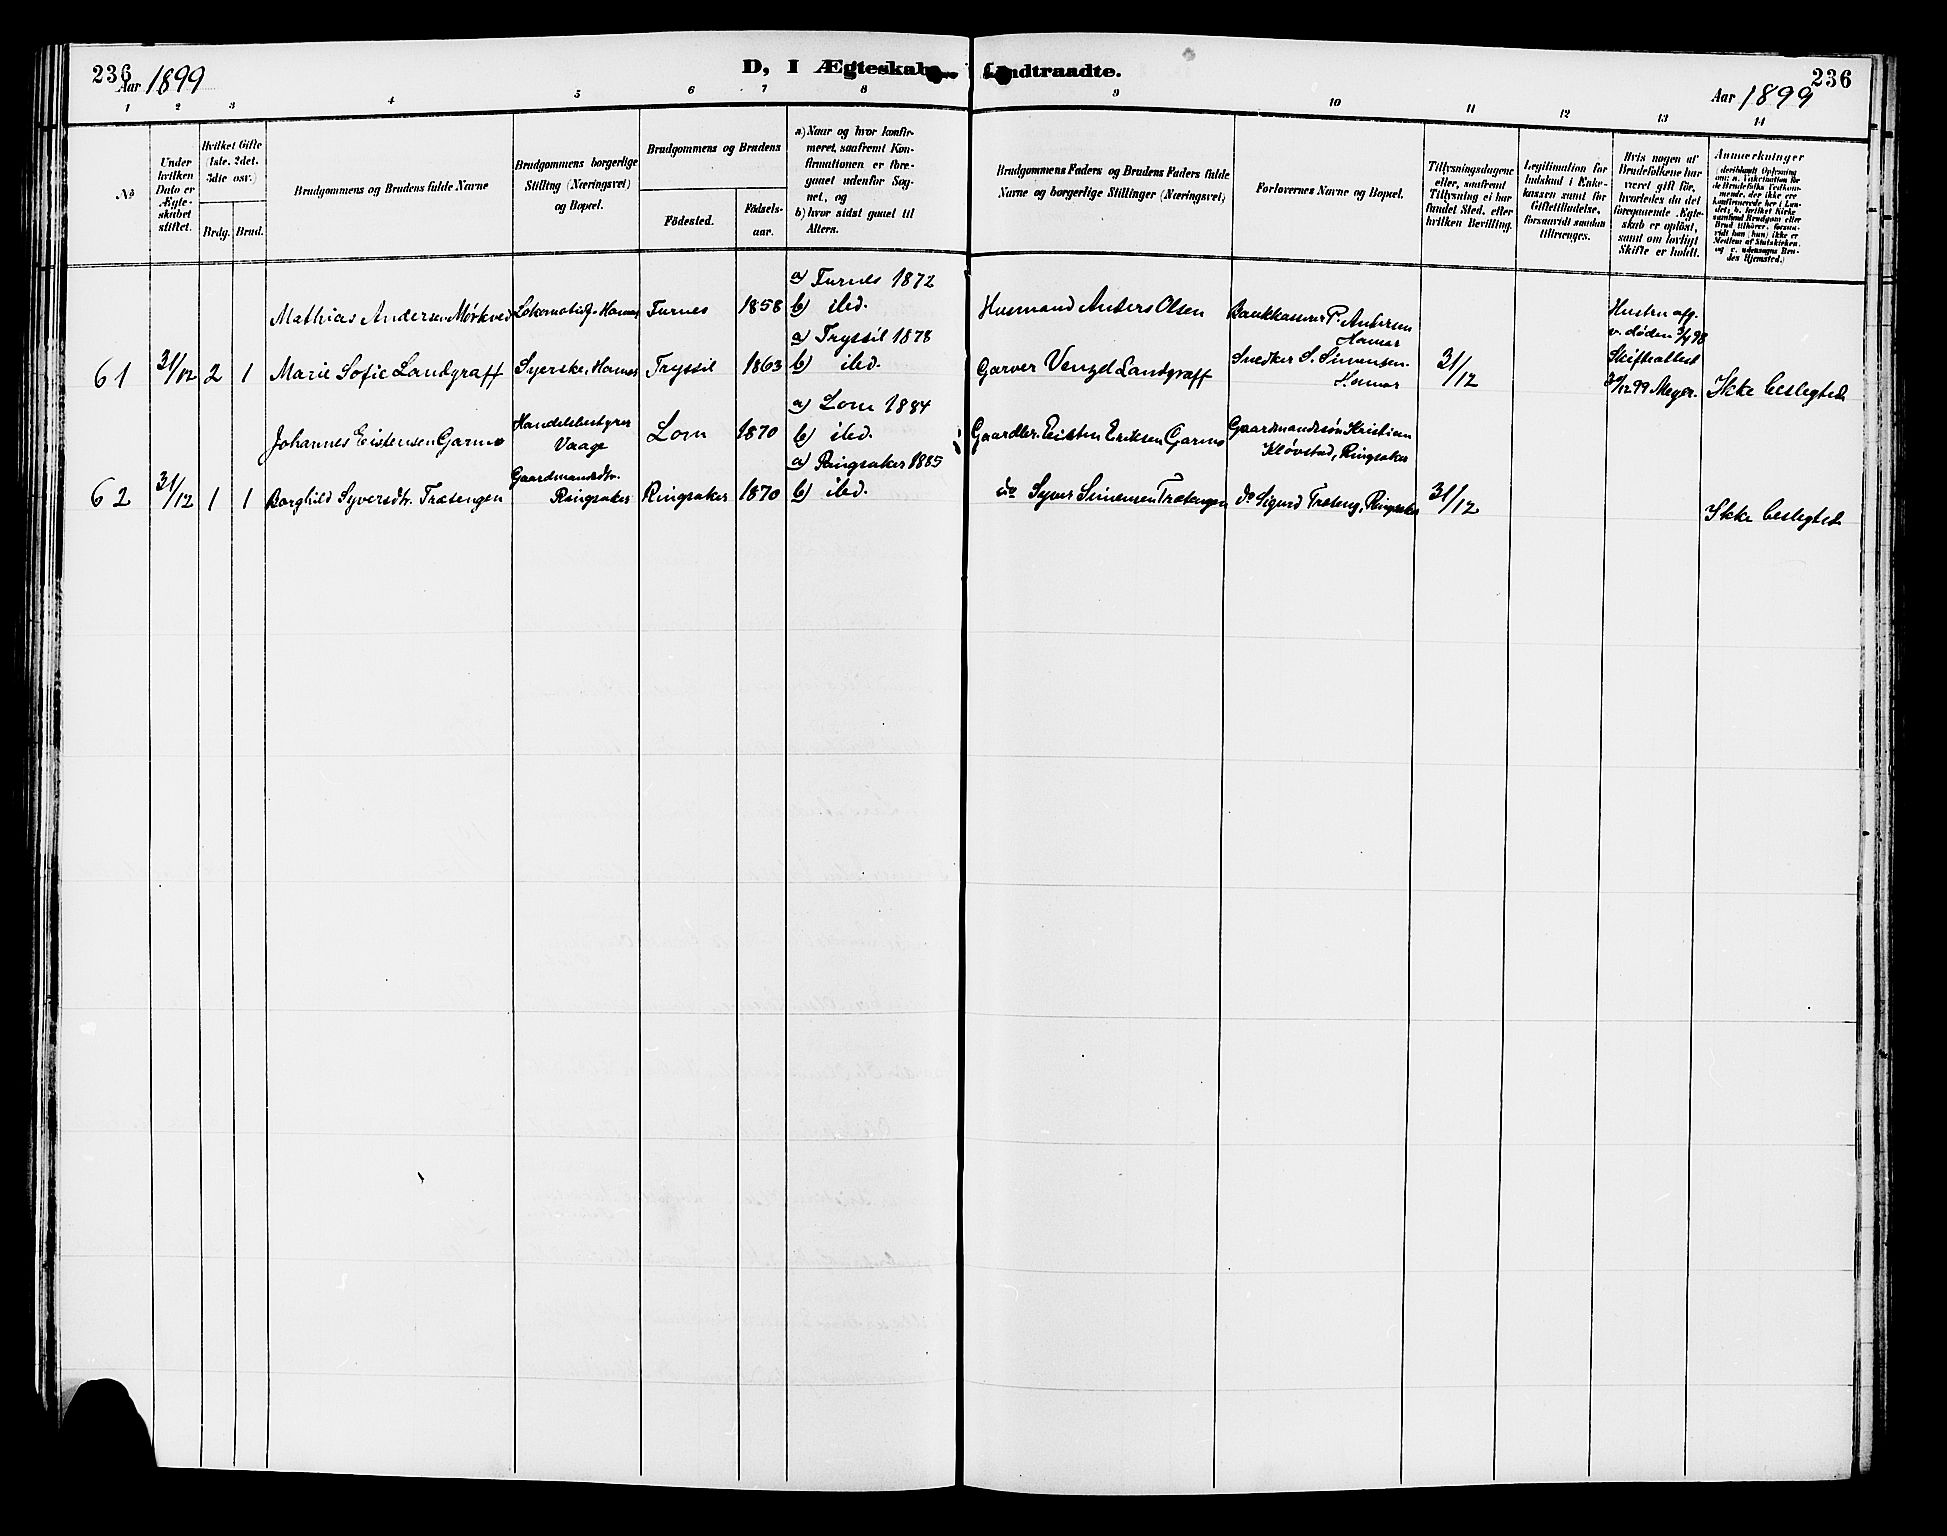 236
Aar 1899
D, I Ægteskab Indtraadte.
236
Aar 1899
1 2 3 4 5 6 7 8 9 10 11 12 13 14
No
Under
hvilken
Dato er
Ægte-
skabet
stiftet.
Hvilket Gifte
(1ste. 2det.
3die osv.)
Brdg. Brud.
Brudgommens og Brudens fulde Navne
Brudgommens borgerlige
Stilling (Næringsvei)
og Bopæl.
Brudgommens og Brudens
Födested.
Födsels-
aar.
a) Naar og hvor konfir-
meret, saafremt Kon-
firmationen er fore-
gaaet udenfor Sog-
net, og
b) hvor sidst gaaet til
Alters.
Brudgommens Faders og Brudens Faders fulde
Navne og borgerlige Stillinger (Næringsvei)
Forlovernes Navne og Bopæl.
Tillysningsdagene
eller, saafremt
Tillysning ei har
fundet Sted, efter
hvilken Bevilling.
Legitimation for
Indskud i Enke-
kassen samt for
Giftetilladelse,
forsaavidt saadan
tiltrænges.
Hvis nogen af
Brudefolkene har
været gift för,
hvorledes da det
foregaaende Ægte-
skab er oplöst,
samt om lovligt
Skifte er holdt.
Anmærkninger
(deriblandt Oplysning
om: a. Vakcination for
de Brudefolks Vedkom-
mende, der ikke ere
konfirmerede her i Lan-
det; b. hvilket Kirke-
samfund Brudgom eller
Brud tilhører, forsaa-
vidt han (hun) ikke er
Medlem af Statskirken,
og c. udensogns Bru-
des Hjemsted.)
Mathias Andersen Mørkved Lokomotivf. Hamar Furnes 1858 a) Furnes 1872
b) ibd. Husmand Anders Olsen Bankkasserer P. Andersen
Hamar Hustru afg.
v. døden 3/4 98
61 31/12 2 1 Marie Sofie Landgraff Syerske, Hamar Tryssil 1863 a) Tryssil 1878
b) ibd. Garver Venzel Landgraff Snedker S. Simensen
Hamar 31/12 Skifteattest
30/12 99 Meyer. Ikke beslegted
Johannes Eistensen Garmo Handelsbestyrer
Vaage Lom 1870 a) Lom 1884
b) ibd. Gaardbr. Eisten Eriksen Garmo Gaardmandssøn Kristian
Kløvstad, Ringsaker
62 31/12 1 1 Borghild Syversdtr. Træsengen Gaardmandsdtr.
Ringsaker Ringsaker 1870 a) Ringsaker 1885
b) ibd. do Syver Simensen Træsengen do Sigurd Træseng, Ringsaker 31/12 Ikke beslegted